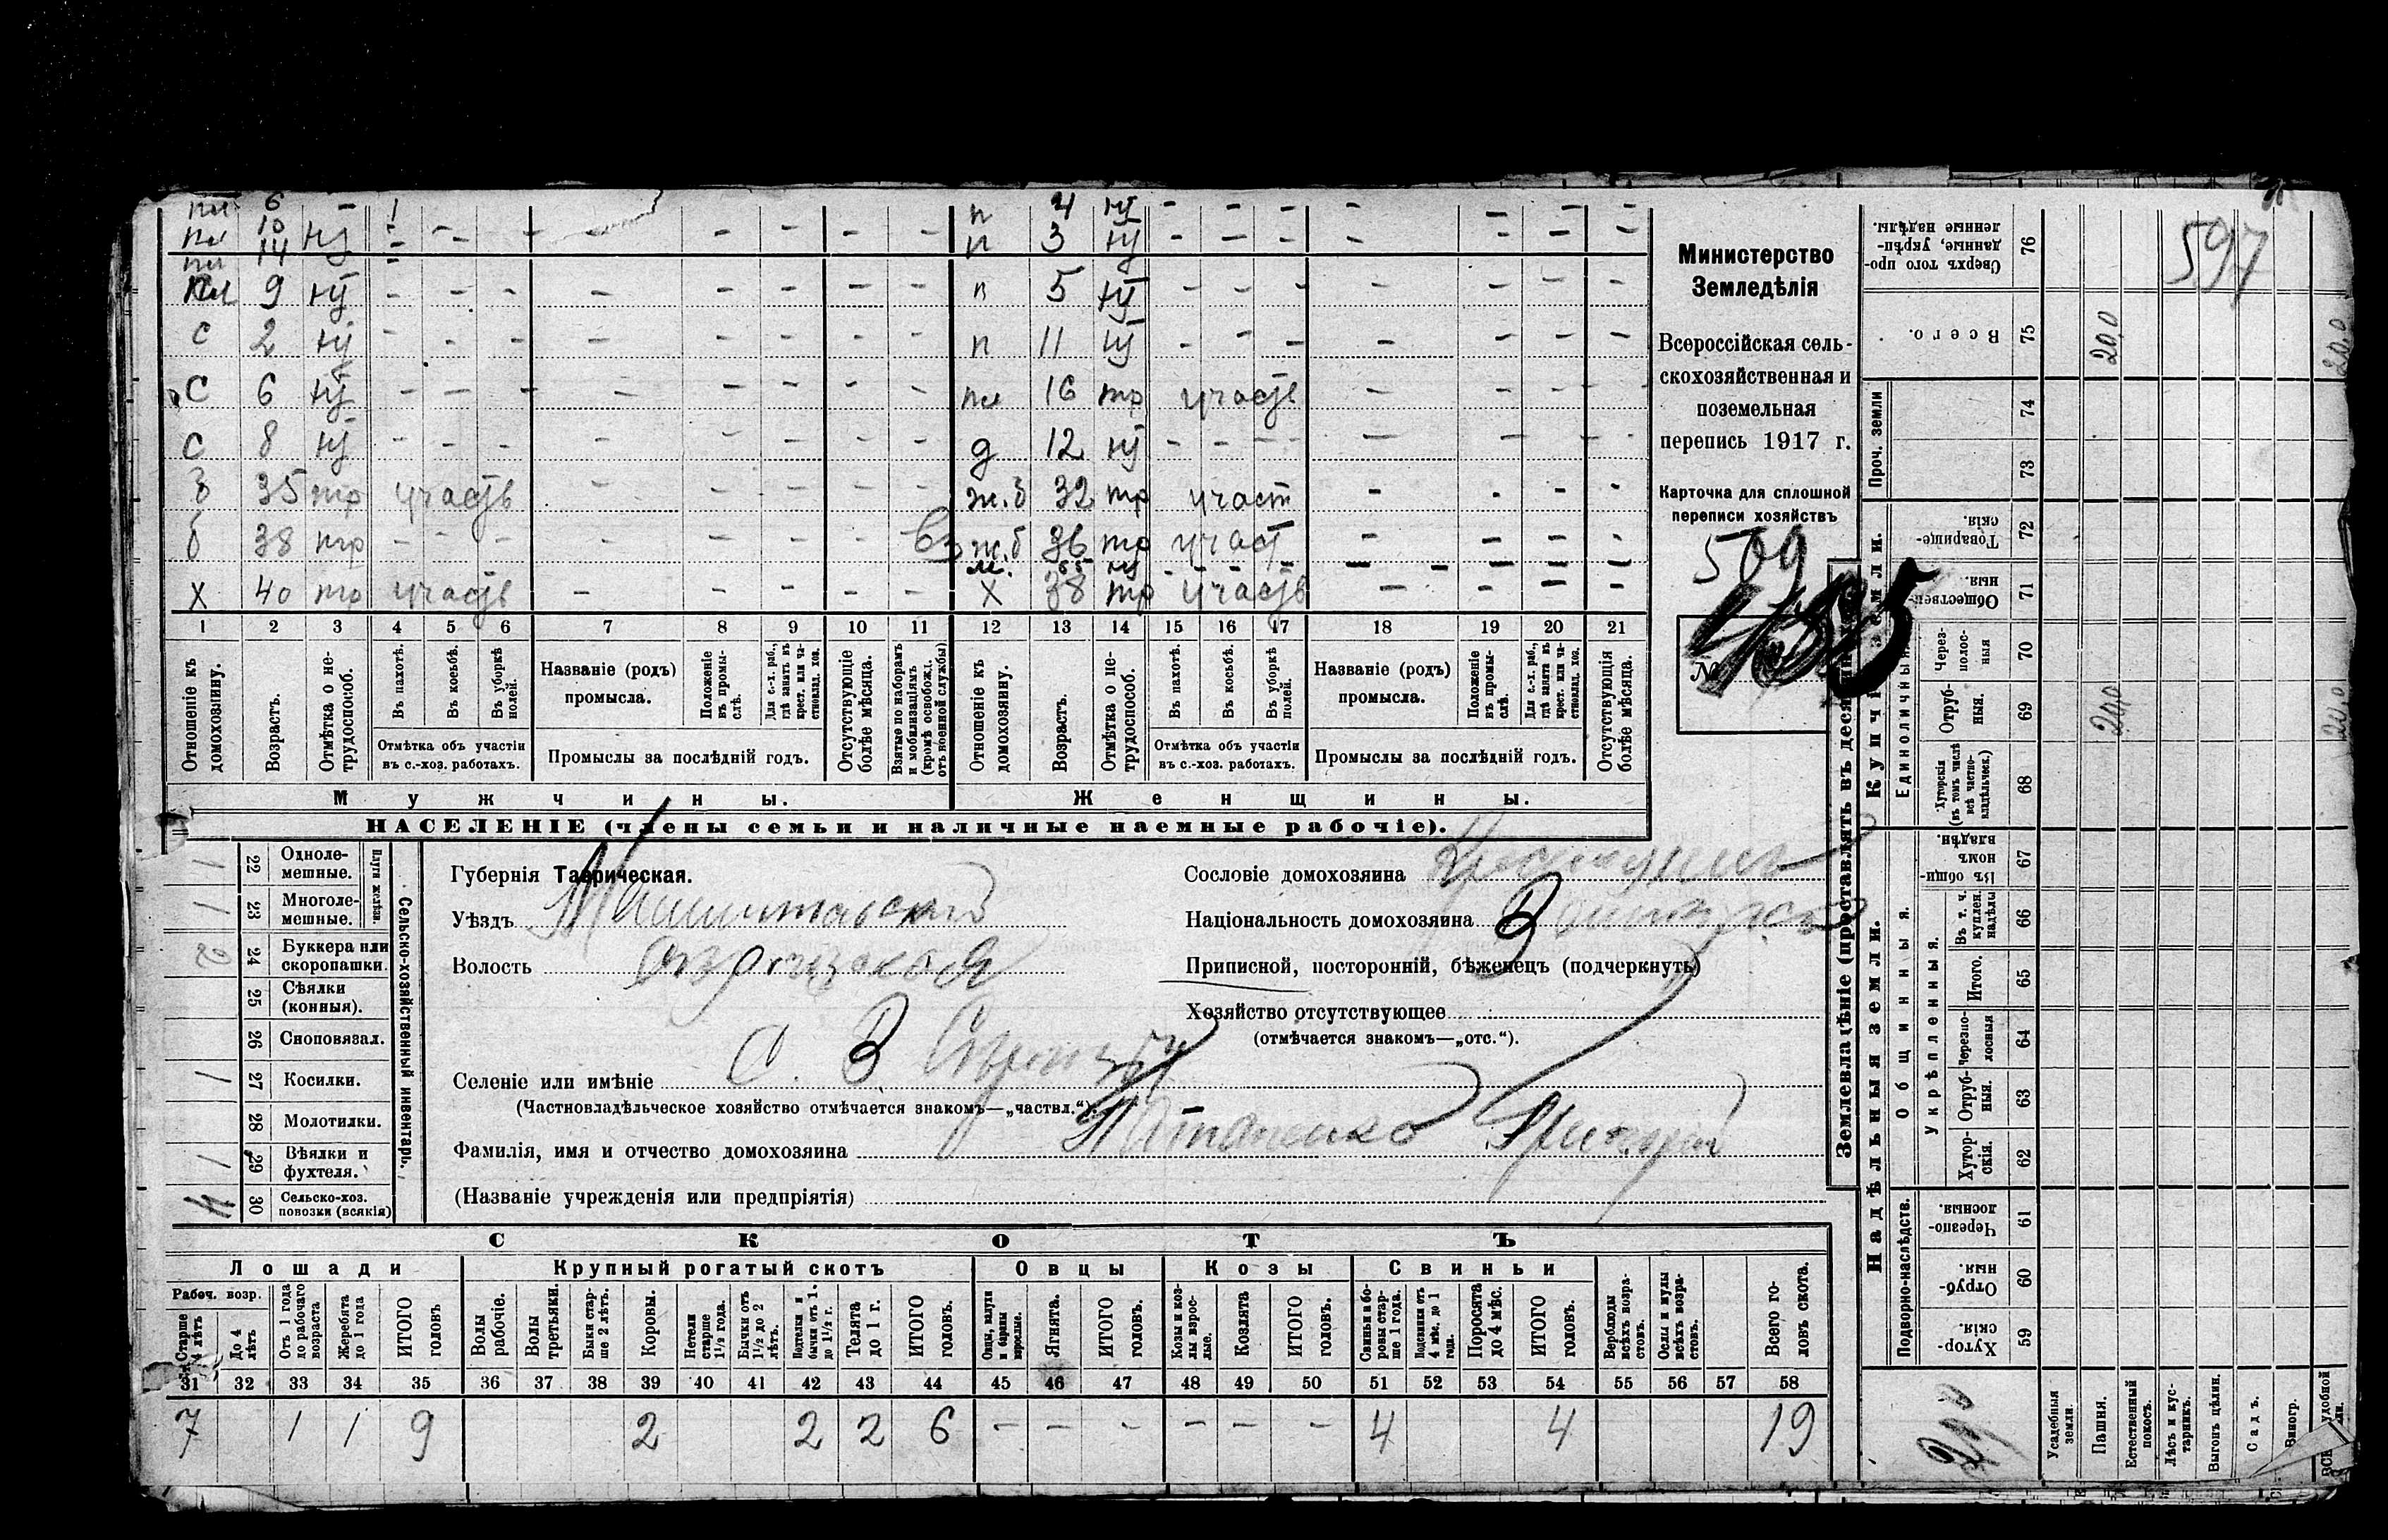 пл 6 - 1 п 4 нij - - - - - - -
пл 10 нij - - - - - - - - п 3 нij - - - - - - -
пл 14 -
пл 9 нij - - - - - - - - п 5 нij - - - - - - -
С 2 нij - - - - - - - - п 11 нij - - - - - - -
С 6 нij - - - - - - - - пл 16 тр участв - - - -
С 8 нij - - - - - - - - д 12 нij - - - - - - -
б 35 тр участв - - - - - ж.б 32 тр участ - - - -
б 38 тр - - - - - - - вз ж.б 36 тр участ - - - -
м. 65 нij - - - - - - -
Х 40 тр участв - - - - - Х 38 тр участв - - - -
1 2 3 4 5 6 7 8 9 10 11 12 13 14 15 16 17 18 19 20 21
Отношеніе къ домохозяину.
Возрастъ.
Отмѣтка о нетрудоспособ.
Въ пахотѣ.
Въ косьбѣ.
Въ уборкѣ полей.
Отмѣтка объ участіи
въ с.-хоз. работахъ.
Названіе (родъ)
промысла.
Положеніе въ промыслѣ.
Для с.-х. раб., гдѣ занятъ въ крест. или частновлад. хоз.
Промыслы за послѣдній годъ.
Отсутствующіе болѣе мѣсяца.
Взятые по наборамъ и мобилизаціямъ (кромѣ освобожд. отъ военной службы)
Отношеніе къ домохозяину.
Возрастъ.
Отмѣтка о нетрудоспособ.
Въ пахотѣ.
Въ косьбѣ.
Въ уборкѣ полей.
Отмѣтка объ участіи
въ с.-хоз. работахъ.
Названіе (родъ)
промысла.
Положеніе въ промыслѣ.
Для с.-х. раб., гдѣ занята въ крест. или частновлад. хоз.
Промыслы за послѣдній годъ.
Отсутствующія болѣе мѣсяца.
Мужчины. Женщины.
НАСЕЛЕНІЕ (члены семьи и наличные наемные рабочіе).
Министерство
Земледѣлія
Всероссійская сель-
скохозяйственная и
поземельная
перепись 1917 г.
Карточка для сплошной
переписи хозяйствъ
509
№
Сельско-хозяйственный инвентарь.
Плуги желѣзн.
1 22 Одноле-
мешные.
1 23 Многоле-
мешные.
2 24 Буккера или
скоропашки.
25 Сѣялки
(конныя).
26 Сноповязал.
1 27 Косилки.
28 Молотилки.
1 29 Вѣялки и
фухтеля.
4 30 Сельско-хоз.
повозки (всякія)
Губернія Таврическая.
Уѣздъ
Волость
С. В
Селеніе или имѣніе
(Частновладѣльческое хозяйство отмѣчается знакомъ—„частвл.“).
Фамилія, имя и отчество домохозяина Потапенко Григорій
(Названіе учрежденія или предпріятія)
Сословіе домохозяина
Національность домохозяина
Приписной, посторонній, бѣженецъ (подчеркнуть)
Хозяйство отсутствующее
(отмѣчается знакомъ—„отс.“).
СКОТЪ
Лошади Крупный рогатый скотъ Овцы Козы Свиньи
Рабоч. возр.
Старше 4 лѣтъ
До 4 лѣтъ
Отъ 1 года до рабочаго возраста
Жеребята до 1 года
ИТОГО головъ
Волы рабочіе.
Волы третьяки.
Быки старше 2 лѣтъ.
Коровы.
Нетели старше 1½ года.
Бычки отъ 1½ до 2 лѣтъ.
Подтелки и бычки отъ 1 до 1½ г.
Телята до 1 г.
ИТОГО головъ.
Овцы, валухи и бараны взрослые.
Ягнята.
ИТОГО головъ.
Козы и козлы взрослые.
Козлята
ИТОГО головъ.
Свиньи и боровы старше 1 года.
Подсвинки отъ 4 мѣс. до 1 года.
Поросята до 4 мѣс.
ИТОГО головъ.
Верблюды всѣхъ возрастовъ.
Ослы и мулы всѣхъ возрастовъ.
Всего головъ скота.
31 32 33 34 35 36 37 38 39 40 41 42 43 44 45 46 47 48 49 50 51 52 53 54 55 56 57 58
7 1 1 9 2 2 2 6 - - - - - - 4 4 19
Надѣльныя земли.
Купчія земли.
Проч. земли
Общинныя.
Укрѣпленныя.
Единоличныя
Подворно-наслѣдств.
Сверхъ того проданные, укрѣпленные надѣлы. 76
Всего. 75 20,0 20,0
74
73
Товарищескія. 72
Общественныя. 71
Черезполосныя 70
Отрубныя. 69 20,0 20,0
Хуторскія (въ томъ числѣ всѣ частновладѣльческ.) 68
Въ общинномъ владѣн. 67
Въ т. ч. куплен. надѣлы 66
Итого. 65
Черезполосныя 64
Отрубныя. 63
Хуторскія. 62
Черезполосныя. 61
Отрубныя. 60
Хуторскія. 59
597
Усадебныя земли.
Пашня.
Естественный покосъ.
Лѣсъ и кустарникъ.
Выгонъ цѣлин.
Садъ.
Виногр.